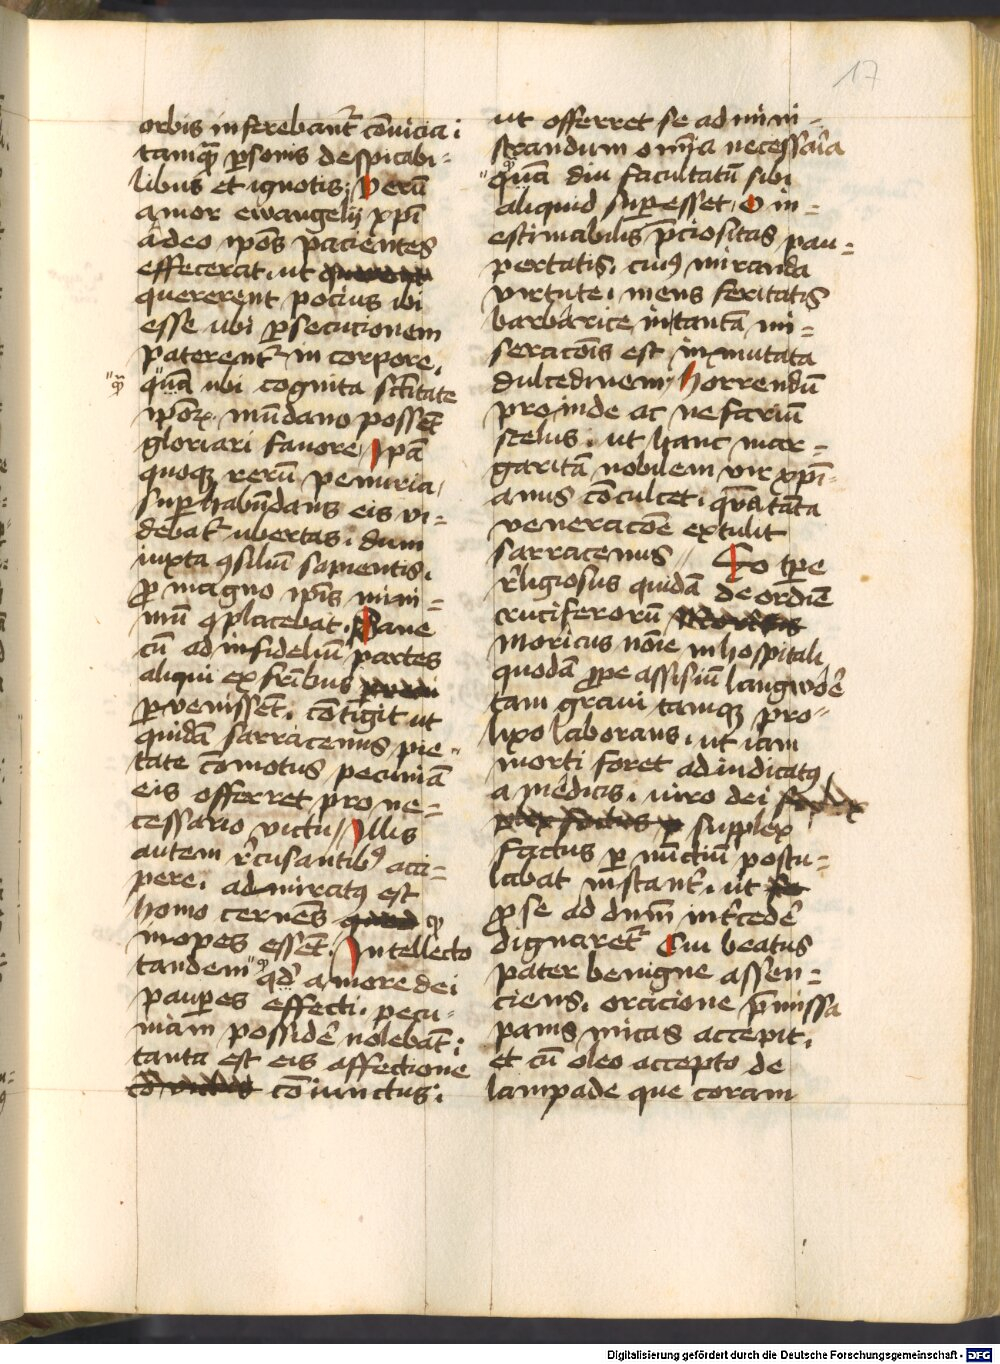 17
orbis inferebant̉ cōuicia i
tamq̄ ꝑsonis despicabi=
libus et ignotis; Verū
amor ewangelij xp̄i
adeo ip̄os pacientes
effecerat . ut
quererent pocius ibi
esse ubi ꝑsecucionem
paterent̉ in corpore .
quā ubi cognita sc̄titate
ip̄oꝝ mūdano possēt
gloriari fauore Ip̄a
quoqꝫ rerū penuria
suꝑhabūdans eis vi=
debat̉ ubertas . dum
iuxta ꝯsiliū sapientis .
ꝓ magno ip̄is mini=
mū ꝯplacebat . Sane
cū ad infideliū partes
aliqui ex fr̄ibus
ꝑvenissēt . cōtigit ut
quidā sarracenus pie=
tate cōmotus pecuniā
eis offerret pro ne=
cessario victu // Illis
autem r̄cusantibꝰ acci=
pere . admiratꝰ est
homo cernēs ꝙ
inopes essēt . Intellecto
tandem qd̄ amore dei
pauꝑes effecti . pecu=
niam possidē nolebāt ;
tanta est eis affectione
cōiunctus .
ut offerret se ad mini=
strandum om̄ia necessaria
quā diu facultatū sibi
aliquid suꝑesset . O in=
estimabilis p̄ciositas pau=
pertatis . cuiꝰ miranda
virtute . mens feritatis
barbarice in tantā mi=
seracōis est īmutata
dulcedinem / Horrendū
proinde ac nefariū
scelus . ut hanc mar=
garitā nobilem vir xp̄i=
anus cōculcet . quā tāta
veneracōe extulit
sarracenus // Eo tꝑe
r̄ligiosus quidā de ordīe
cruciferorū
moricus nōie in hospitali
quodā ꝓpe assisiū langwōē
tam graui tamqꝫ pro=
lixo laborans . ut iam
morti foret adiudicatꝰ
a medicis . viro dei
supplex
factus ꝑ nūctiū postu=
labat instant̉ . ut
ꝓ se ad dn̄m int̉cedē
dignaret̉ Cui beatus
pater benigne assen=
ciens . oracione p̄missa
panis micas accepit .
et cū oleo accepto de
lampade que coram
Digitalisierung gefördert durch die Deutsche Forschungsgemeinschaft - DFG